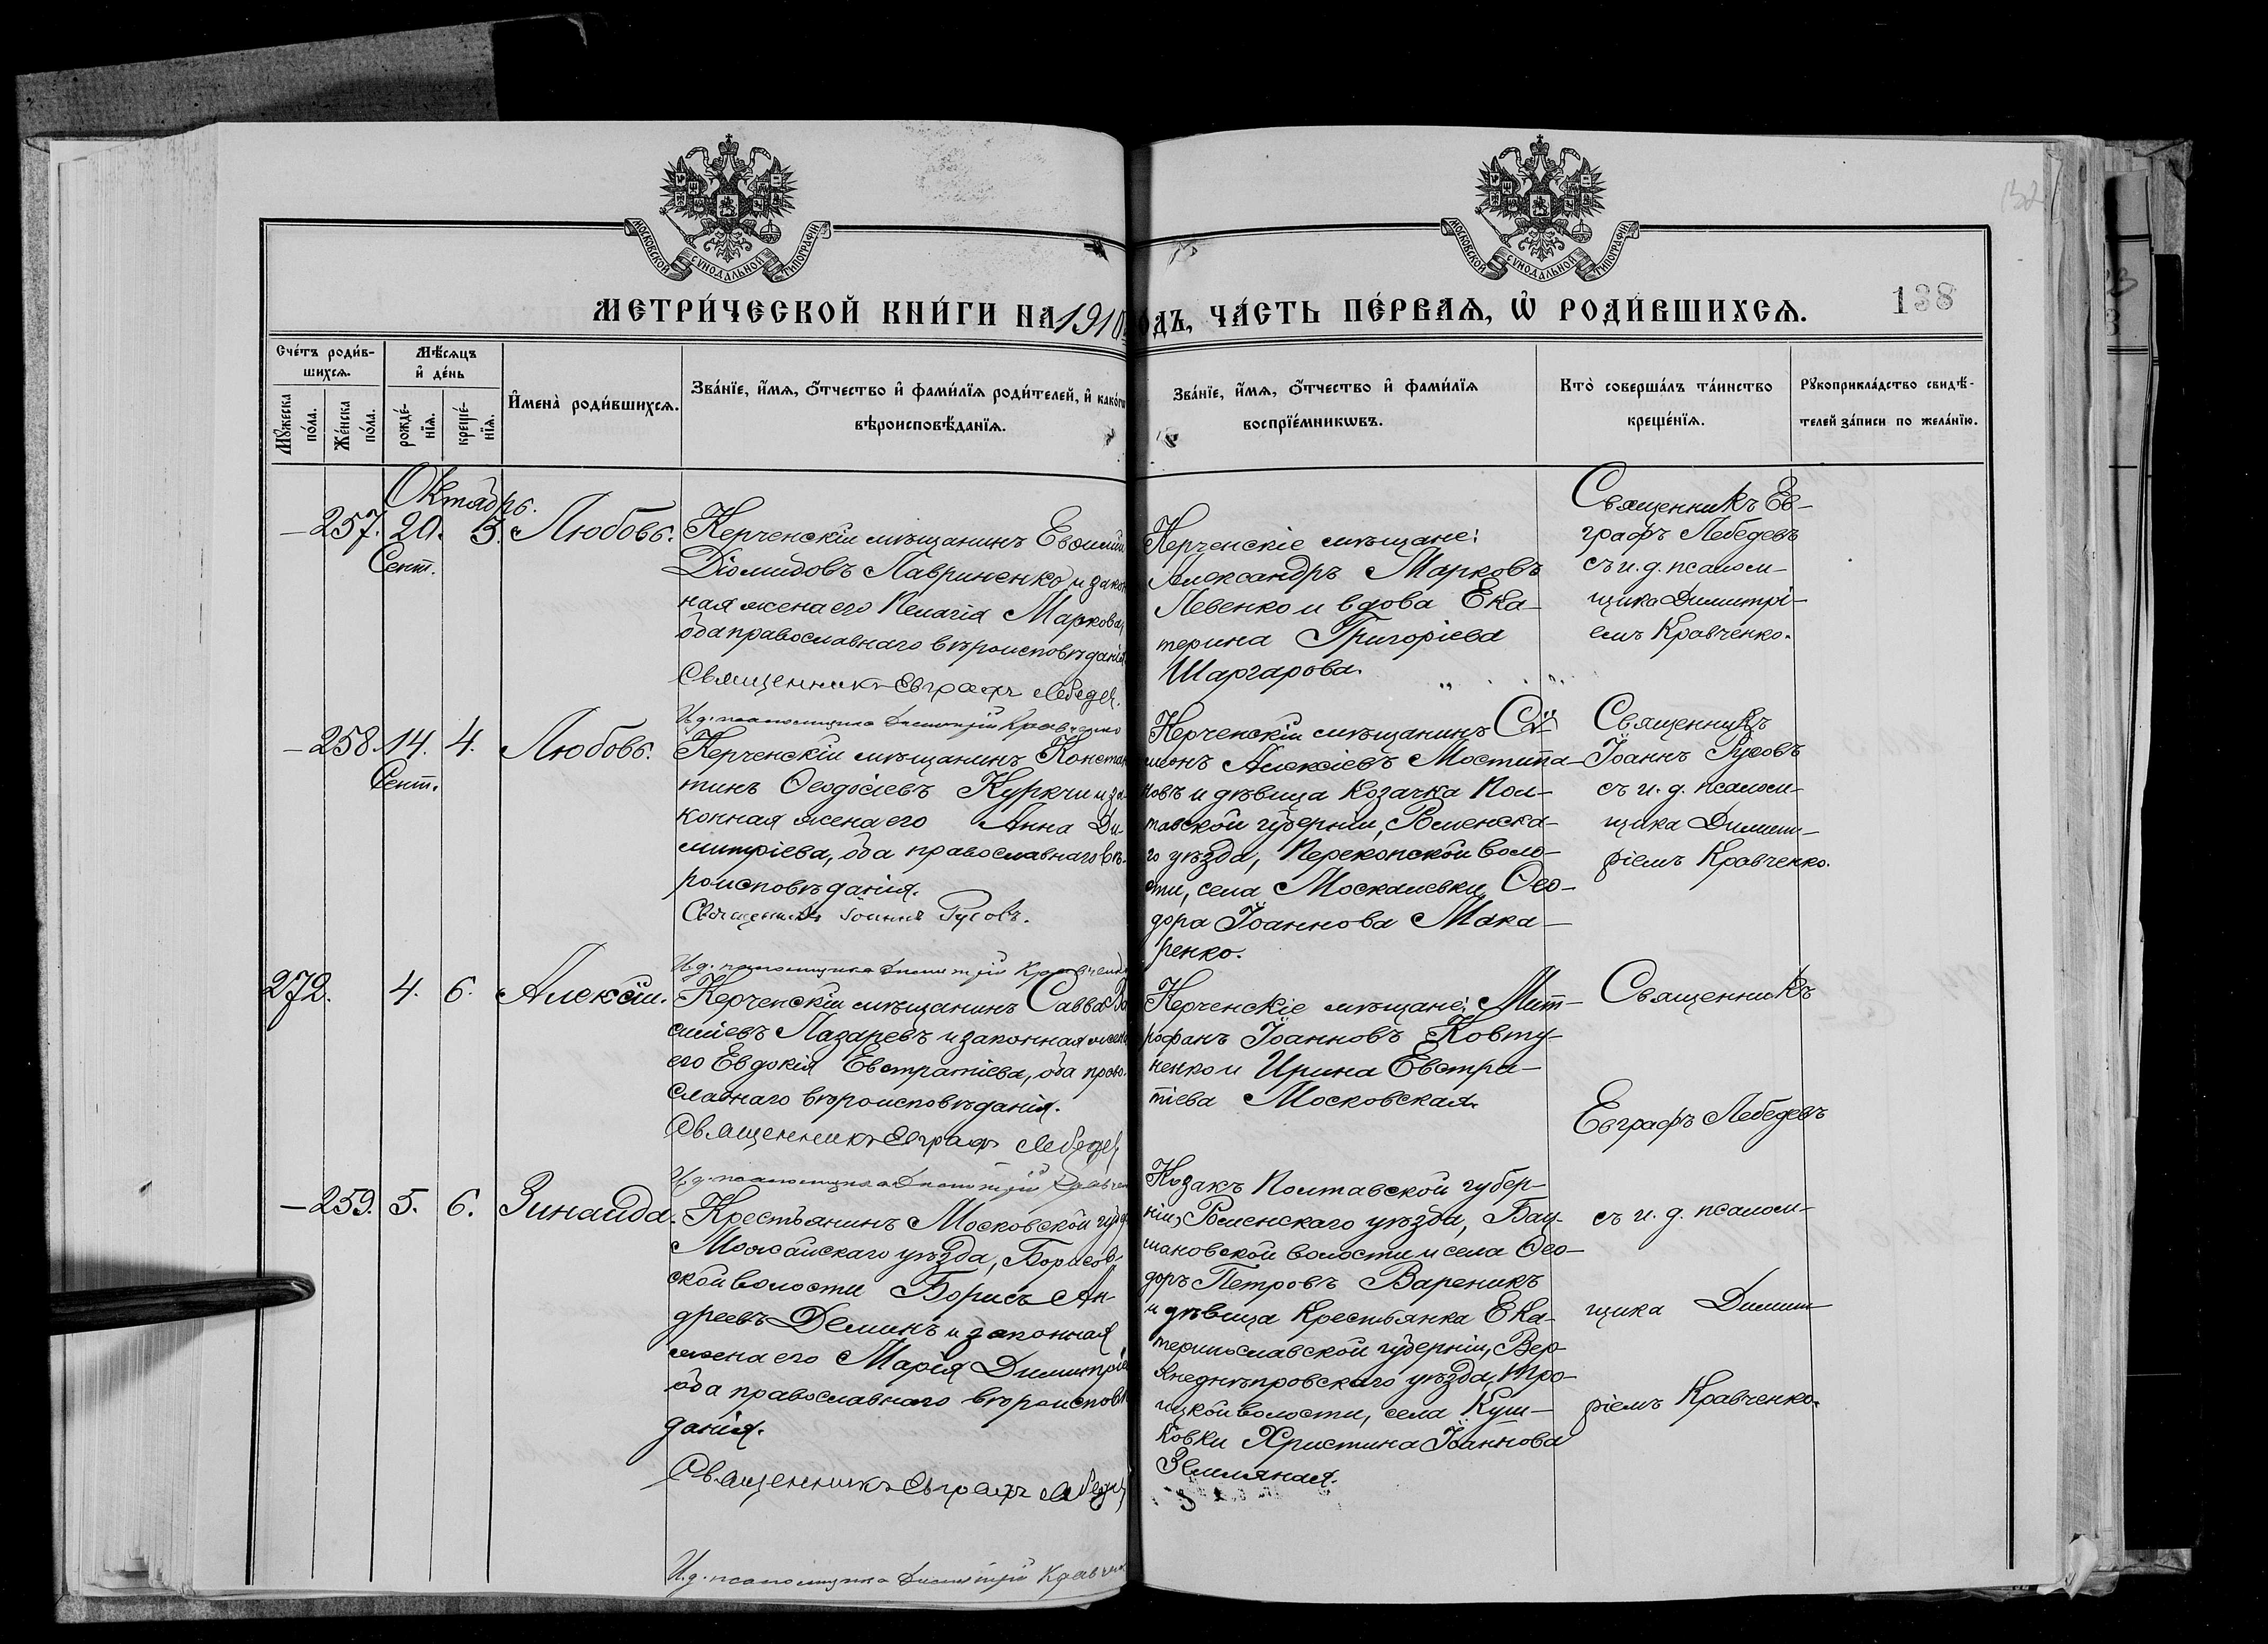 МОСКОВСКОЙ СѴНОДАЛЬНОЙ ТИПОГРАФІИ
МОСКОВСКОЙ СѴНОДАЛЬНОЙ ТИПОГРАФІИ
132
МЕТРИ́ЧЕСКОЙ КНИ́ГИ НА 1910 ОДЪ, ЧА́СТЬ ПЕ́РВАѦ, Ѡ҆ РОДИ́ВШИХСѦ.
138
Сче́тъ роди́в-
шихсѧ.
Мꙋ́жеска
по́ла.
Же́нска
по́ла.
Мѣ́сѧцъ
и҆ де́нь
рожде́-
нїѧ.
креще́-
нїѧ.
И҆мена̀ роди́вшихсѧ.
Зва́нїе, и҆́мѧ, ѻ҆́тчество и҆ фами́лїѧ роди́телей, и҆ како́гѡ
вѣроисповѣ́данїѧ.
Зва́нїе, и҆́мѧ, ѻ҆́тчество и҆ фами́лїѧ
воспрїе́мникѡвъ.
Кто̀ соверша́лъ та́инство
креще́нїѧ.
Рꙋкоприкла́дство свидѣ́-
телей за́писи по жела́нїю.
Октябрь.
257. 20. 3. Любовь.
Сент.
Керченскій мѣщанинъ Евѳимій
Діомидовъ Лавриненко и закон
ная жена его Пелагія Маркова,
оба православнаго вѣроисповѣданія
Священникъ Евграфъ Лебедев.
И.д. псаломщика Димитрій Кравченко
Керченскіе мѣщане:
Александръ Марковъ
Левенко и вдова Ека-
терина Григоріева
Шаргарова.
Священникъ Ев-
графъ Лебедевъ
съ и. д. псалом-
щика Димитрі-
емъ Кравченко.
258. 14. 4. Любовь.
Сент.
Керченскій мѣщанинъ Констан
тинъ Ѳеодосіевъ Куркчи и за-
конная жена его Анна Ди-
митріева, оба православнаго вѣ-
роисповѣданія.
Священникъ Іоаннъ Русовъ.
И.д. псаломщика Димитрій Кравченко
Керченскій мѣщанинъ Сѵ-
меонъ Алексіевъ Мостипа-
новъ и дѣвица козачка Пол-
тавской губерніи, Роменска-
го уѣзда, Перекопской воло-
сти, села Москалевки Ѳео-
дора Іоаннова Мака-
ренко.
Священникъ
Іоаннъ Русовъ
съ и. д. псалом-
щика Димит-
ріемъ Кравченко.
272. 4. 6. Алексій.
Керченскій мѣщанинъ Савва Ва
силіевъ Лазаревъ и законная жена
его Евдокія Евстратіева, оба право-
славнаго вѣроисповѣданія.
Священникъ Евграфъ Лебедев
И.д. псаломщика Димитрій Кравчен
Керченскіе мѣщане: Мит-
рофанъ Іоанновъ Ковту-
ненко и Ирина Евстра-
тіева Московская.
Священникъ
Евграфъ Лебедевъ
259. 5. 6. Зинаида.
Крестьянинъ Московской губ
Можайскаго уѣзда, Борисов-
ской волости Борисъ Ан-
дреевъ Деминъ и законная
жена его Марія Димитріе
оба православнаго вѣроисповѣ
данія.
Священникъ Евграфъ Лебедев
И.д. псаломщика Димитрій Кравчен
Козакъ Полтавской губер-
ніи, Роменскаго уѣзда, Бац-
мановской волости и села Ѳео-
доръ Петровъ Вареникъ
и дѣвица крестьянка Ека-
теринославской губерніи, Вер-
хнеднѣпровскаго уѣзда, Тро-
ицкой волости, села Куш-
ковки Христина Іоаннова
Земляная.
съ и. д. псалом-
щика Димит-
ріемъ Кравченко.